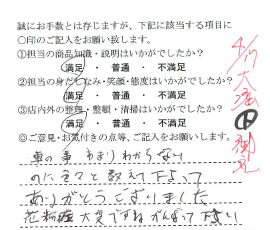 誠にお手数とは存じますが、下記に該当する項目に
〇印のご記入をお願い致します。
①担当の商品知識・説明はいかがでしたか？
満足 ・ 普通 ・ 不満足
②担当の身だしなみ・笑顔・態度はいかがでしたか？
満足 ・ 普通 ・ 不満足
③店内外の整理・整頓・清掃はいかがでしたか？
満足 ・ 普通 ・ 不満足
◎ご意見・お気付きの点等、ご記入をお願いします。
車の事 あまりわからない
のに色々と教えて下さって
ありがとうございました
花粉症 大変ですね がんばって下さい